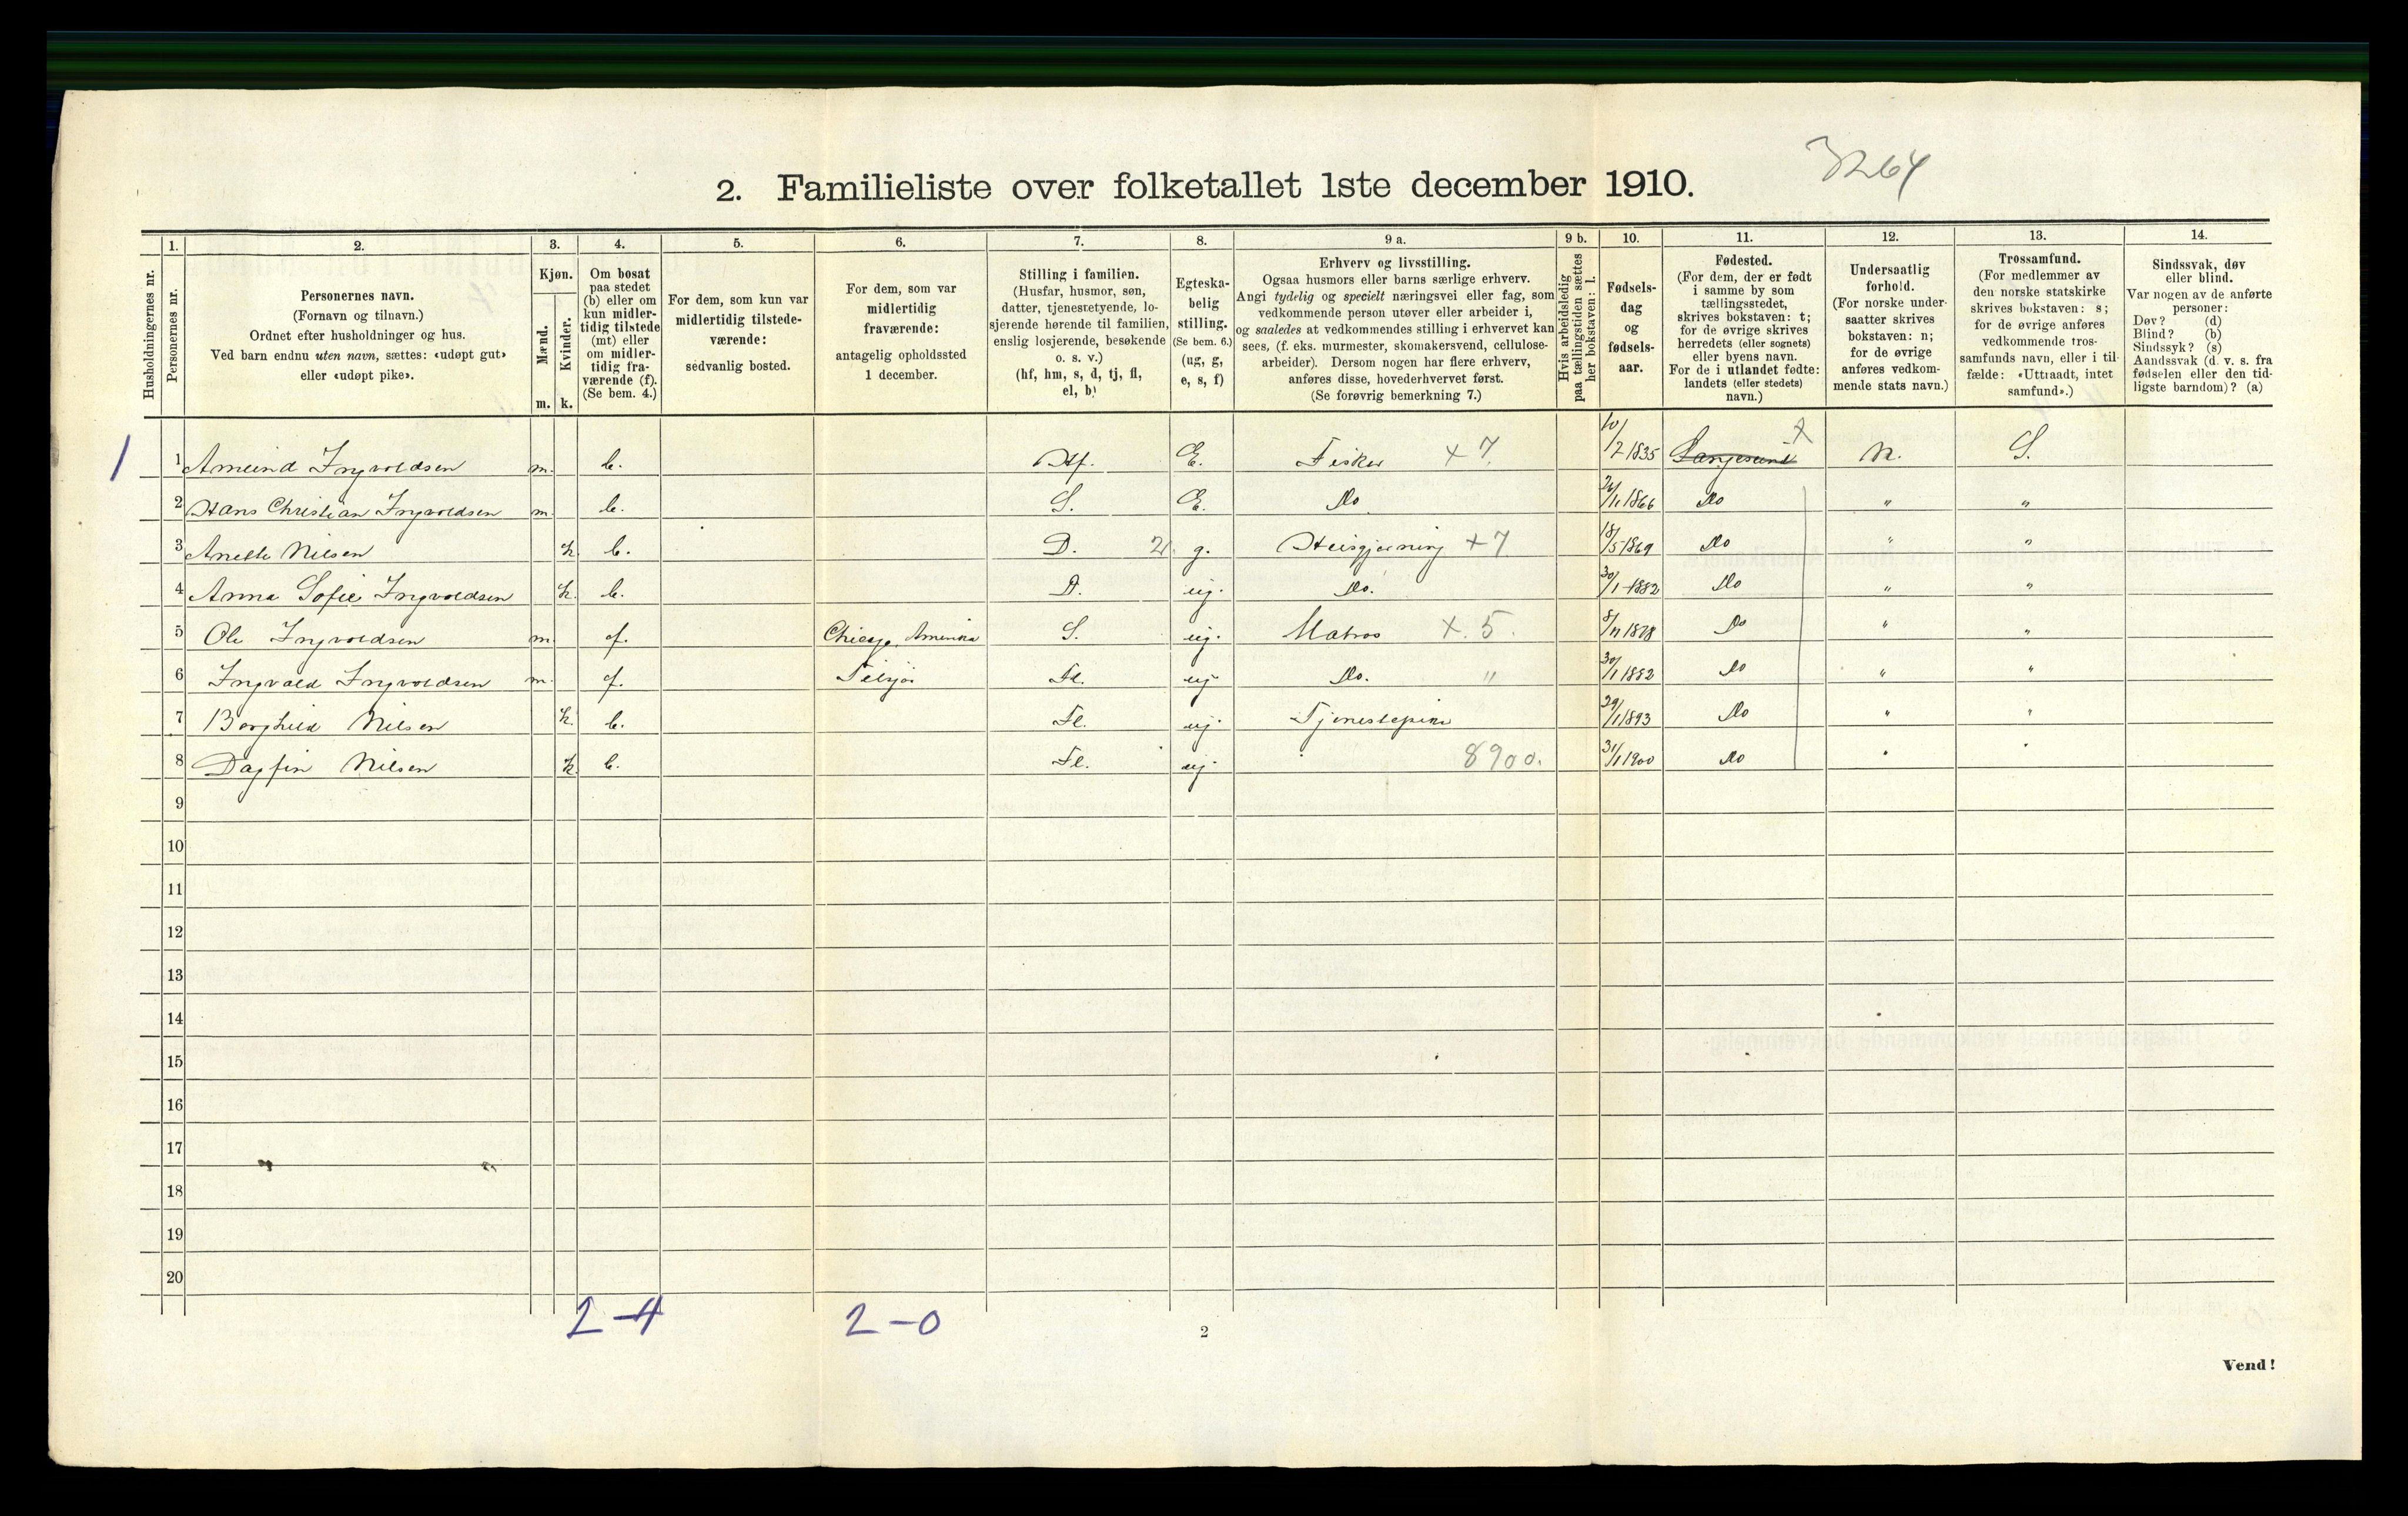 3264
2. Familieliste over folketallet 1ste december 1910.
Husholdningernes nr.
1.
Personernes nr.
2.
Personernes navn.
(Fornavn og tilnavn.)
Ordnet efter husholdninger og hus.
Ved barn endnu uten navn, sættes: «udøpt gut»
eller «udøpt pike».
3.
Kjøn.
Mænd.
Kvinder.
m. k.
4.
Om bosat
paa stedet
(b) eller om
kun midler-
tidig tilstede
(mt) eller
om midler-
tidig fra-
værende (f).
(Se bem. 4.)
5.
For dem, som kun var
midlertidig tilstede-
værende:
sedvanlig bosted.
6.
For dem, som var
midlertidig
fraværende:
antagelig opholdssted
1 december.
7.
Stilling i familien.
(Husfar, husmor, søn,
datter, tjenestetyende, lo-
sjerende hørende til familien,
enslig losjerende, besøkende
o. s. v.)
(hf, hm, s, d, tj, fl,
el, b)
8.
Egteska-
belig
stilling.
(Se bem. 6.)
(ug, g,
e, s, f)
9 a.
Erhverv og livsstilling.
Ogsaa husmors eller barns særlige erhverv.
Angi tydelig og specielt næringsvei eller fag, som
vedkommende person utøver eller arbeider i,
og saaledes at vedkommendes stilling i erhvervet kan
sees, (f. eks. murmester, skomakersvend, cellulose-
arbeider). Dersom nogen har flere erhverv,
anføres disse, hovederhvervet først.
(Se forøvrig bemerkning 7.)
9 b.
Hvis arbeidsledig
paa tællingstiden sættes
her bokstaven: l.
10.
Fødsels-
dag
og
fødsels-
aar.
11.
Fødested.
(For dem, der er født
i samme by som
tællingsstedet,
skrives bokstaven: t;
for de øvrige skrives
herredets (eller sognets)
eller byens navn.
For de i utlandet fødte:
landets (eller stedets)
navn.)
12.
Undersaatlig
forhold.
(For norske under-
saatter skrives
bokstaven: n;
for de øvrige
anføres vedkom-
mende stats navn.)
13.
Trossamfund.
(For medlemmer av
den norske statskirke
skrives bokstaven: s;
for de øvrige anføres
vedkommende tros-
samfunds navn, eller i til-
fælde: «Uttraadt, intet
samfund».)
14.
Sindssvak, døv
eller blind.
Var nogen av de anførte
personer:
Døv? (d)
Blind? (b)
Sindssyk? (s)
Aandssvak (d. v. s. fra
fødselen eller den tid-
ligste barndom)? (a)
1 1 Arneind Ingvoldsen m. b. Hf. E. Fisker + 7. 10/2 1835 Langesund t N. S.
2 Hans Christian Ingvoldsen m. b. S. E. Do 26/11 1866 Do " "
3 Anette Nilsen k. b. D. 2 g. Husgjerning + 7 18/5 1869 Do " "
4 Anna Sofie Ingvoldsen k. b. D. ug. Do. 30/1 1882 Do " "
5 Ole Ingvoldsen m. f. Chicago, Amerika S. ug. Matros + 5. 8/11 1878 Do " "
6 Ingvald Ingvoldsen m. f. Tilsjøs Fl. ug. Do. " 30/1 1882 Do " "
7 Borghild Nilsen k. b. Fl. ug. Tjenestepike 29/1 1893 Do " "
8 Dagfin Nilsen k. b. Fl. ug. " 8900. 31/1 1900 Do " "
9
10
11
12
13
14
15
16
17
18
19
20
2-4 2-0
2
Vend!